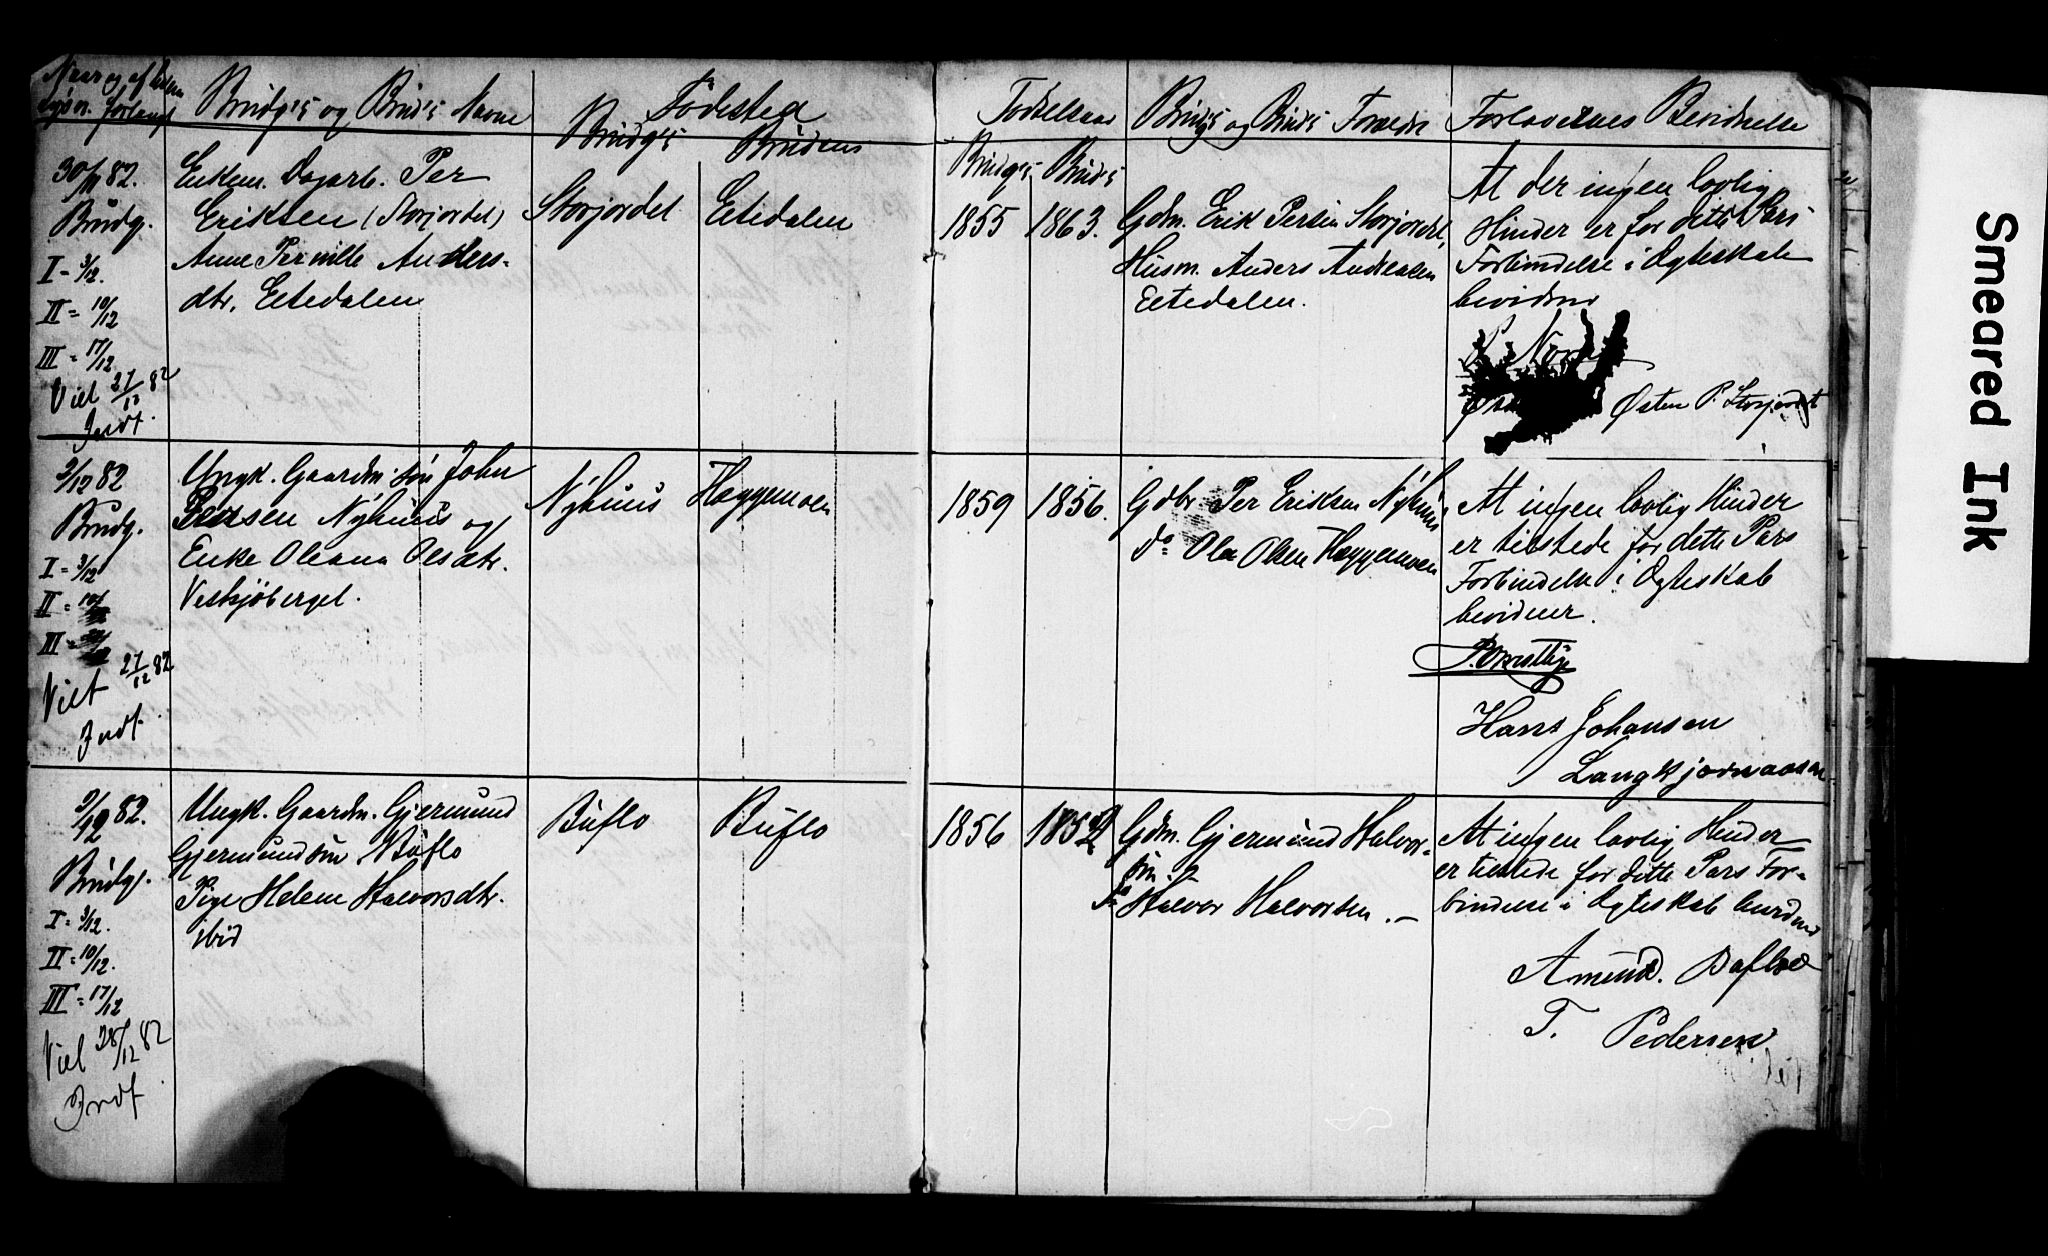 Naar og af hvem
lysn. forlangt
Brudg's og Brud's Navne
Fødested
Brudg's Brudens
Fødselsaar
Brudg's Brud's
Brudg's og Brud's Forældre
Forlovernes Bevidnelse
30/11 82.
Brudg.
I = 3/12.
II = 10/12
III = 17/12
Viet 27/12 82
Indf.
Enkem. Dagarb. Per
Eriksen (Storjordet)
Anne Pernille Anders-
dtr. Eltedalen
Storjordet
Eltedalen
1855
1863.
Gdm. Erik Persen Storjordet,
Husm. Anders Andreasen
Eltedalen.
At der ingen lovlig
Hinder er for dette Pars
Forbindelse i Ægteskab
bevidner
Østen P. Storjordet
2/12 82
Brudg.
I = 3/12
II = 10/
III =
Viet 27/12 82
Indf.
Ungk. Gaardm. søn John
Persen Nÿhuus og
Enke Oleana Olsdtr.
Vestsjöberget.
Nÿhuus
Hæggemoen
1859
1856.
Gdbr. Per Eriksen Nÿhuus
do Ola Olsen Hæggemoen
At ingen lovlig Hinder
er tilstede for dette Pars
Forbindelse i Ægteskab
bevidner.
Hans Johansen
Langkjernaasen
2/12 82.
Brudg.
I = 3/12.
II = 10/12.
III = 17/12
Viet 28/12 82
Indf
Ungk. Gaardm. Gjermund
Gjermundsøn Buflo
Pige Helene Halvorsdtr.
ibid
Buflo
Buflo
1856
1852
Gdm. Gjermund Halvor-
søn.
do Halvor Halvorsen. —
At ingen lovlig Hinder
er tilstede for dette Pars For-
bindelse i Ægteskab bevidnes
Amund. Bafloe
T. Pedersen
Smeared Ink